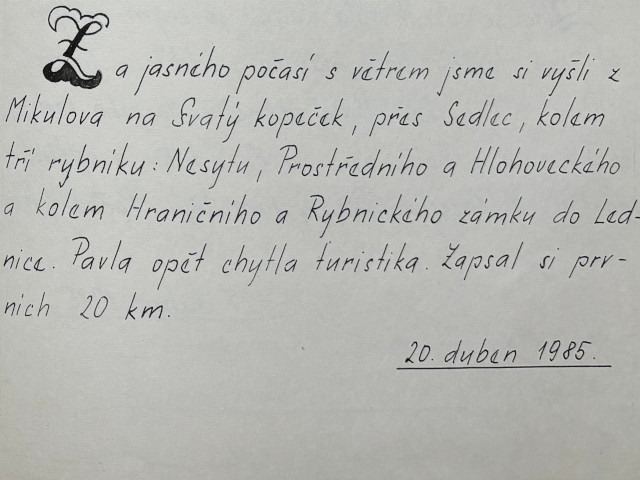 Za jasného počasí s větrem jsme si vyšli z
Mikulova na Svatý kopeček, přes Sedlec, kolem
tří rybníku: Nesytu, Prostředního a Hlohoveckého
a kolem Hraničního a Rybnického zámku do Led-
nice. Pavla opět chytla turistika. Zapsal si prv-
nich 20 km.
20. duben 1985.